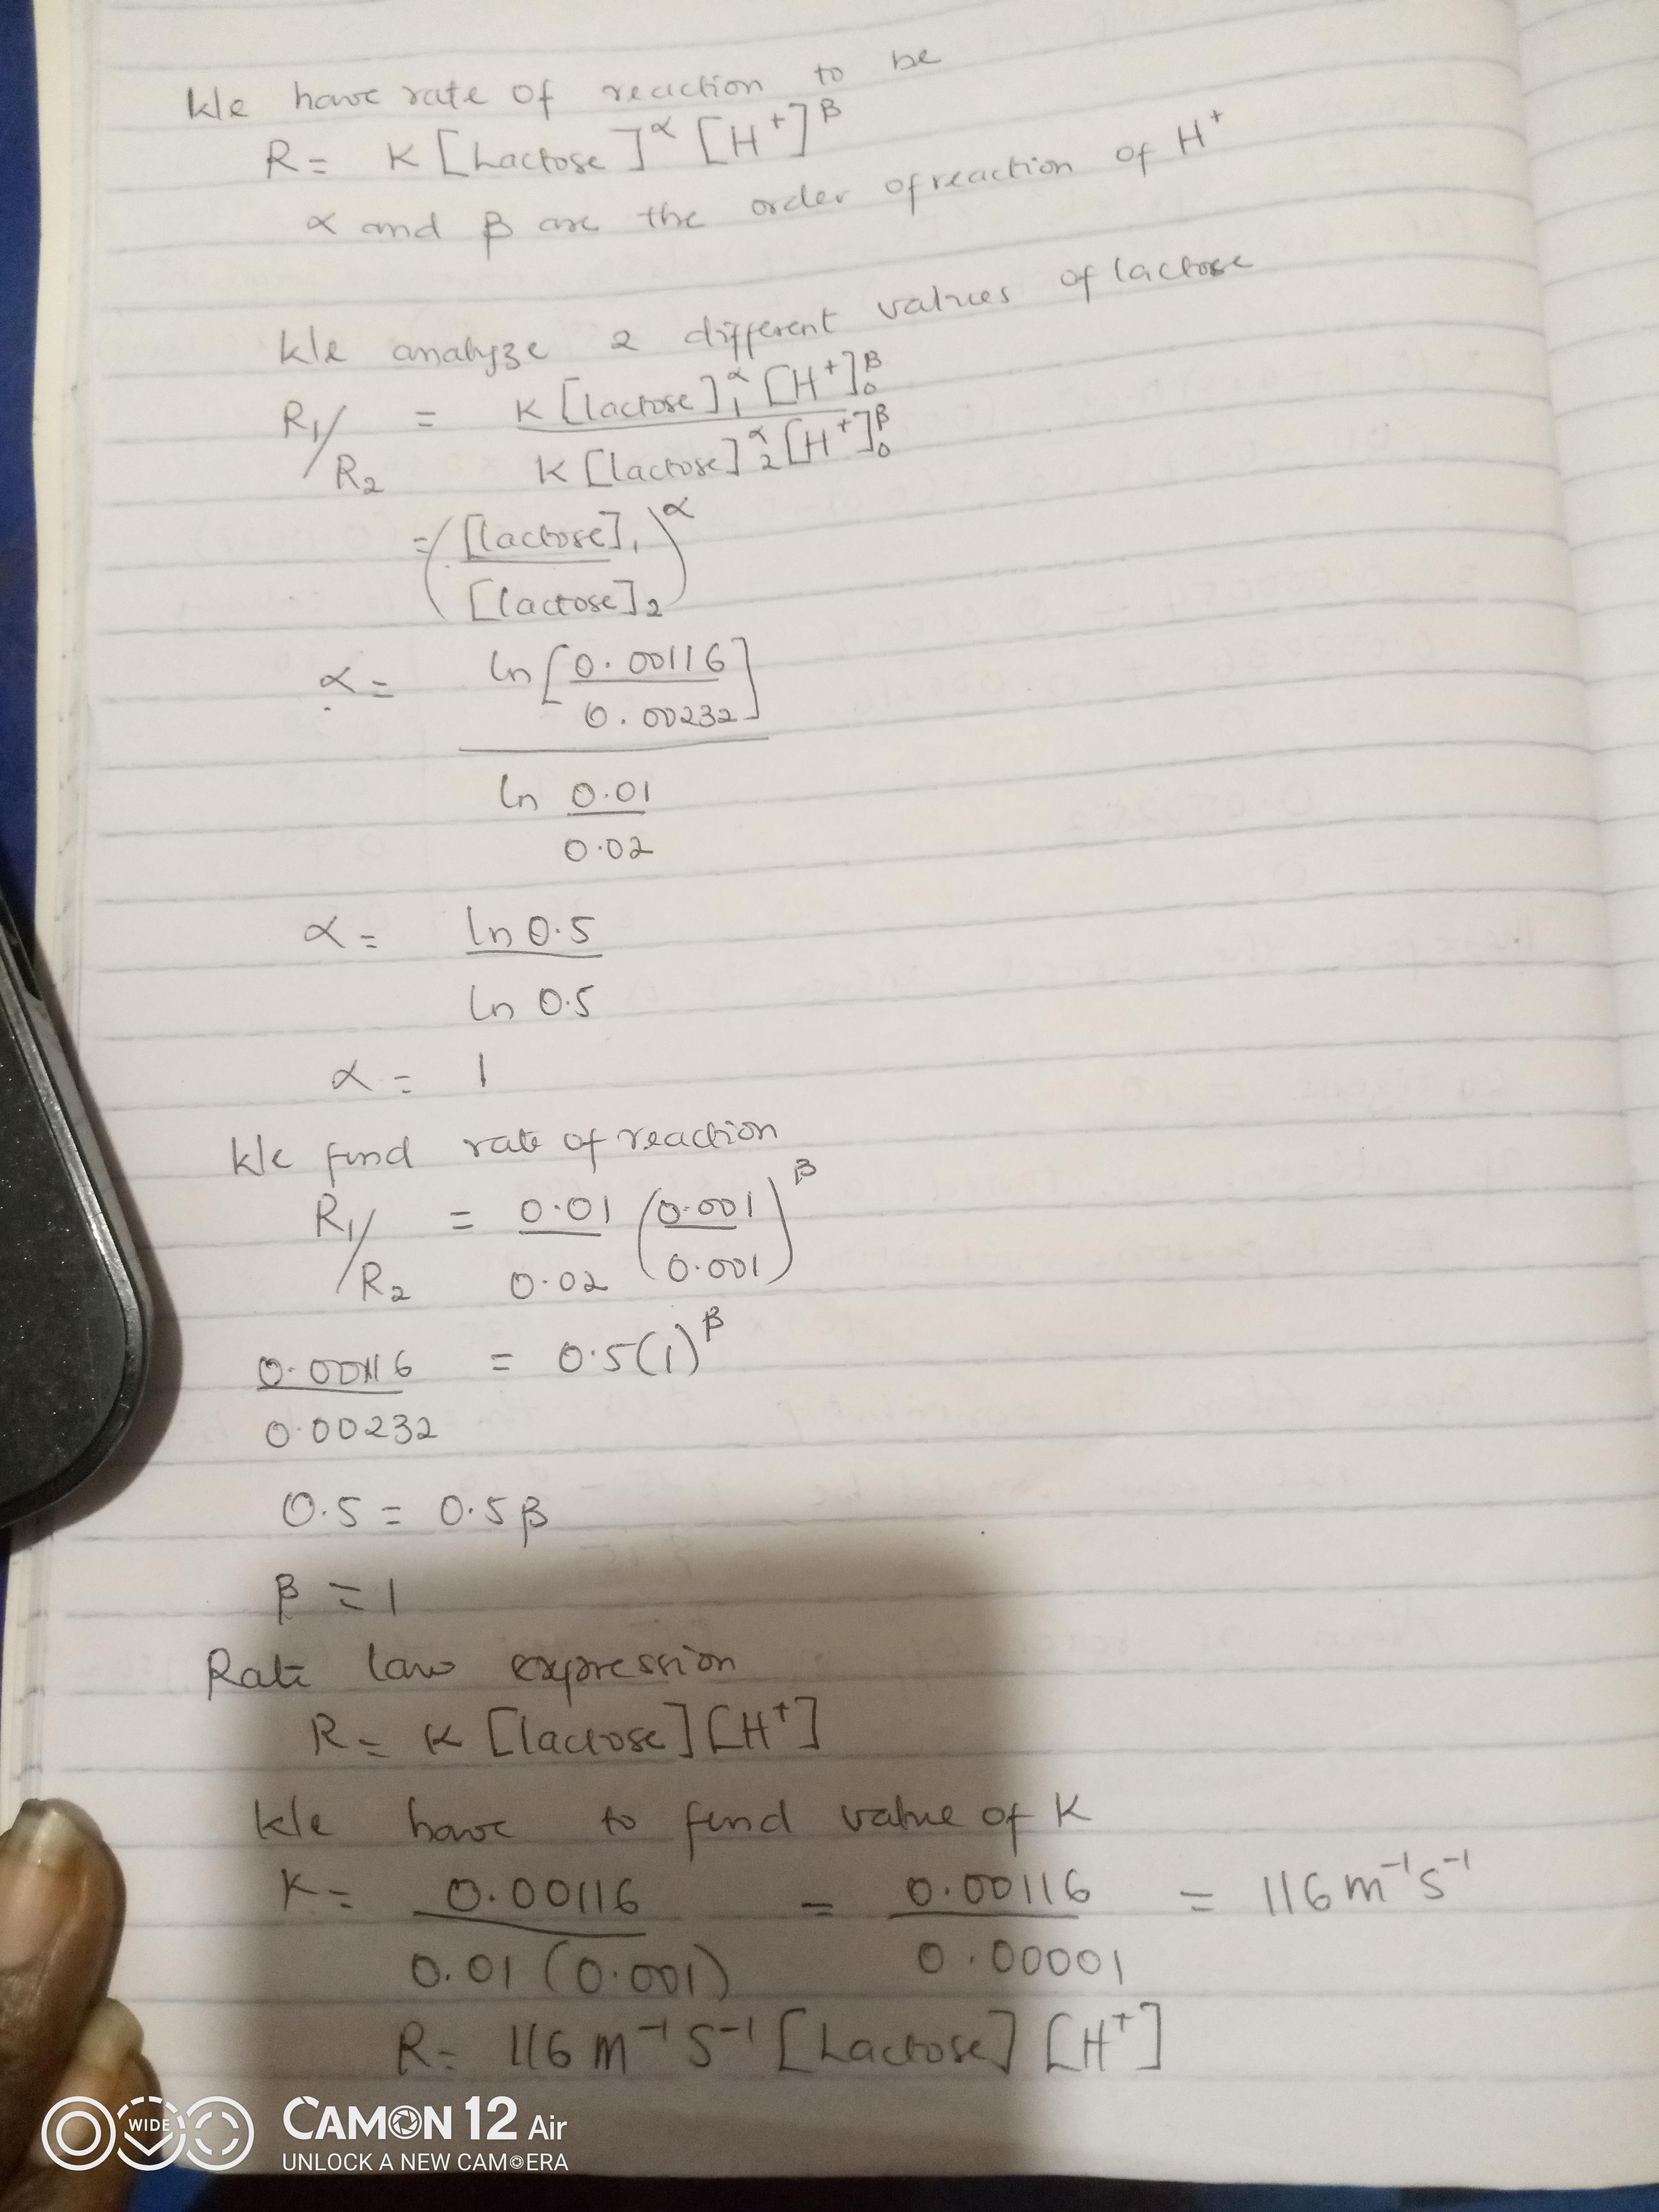 We have rate of reaction to be
R = K [Lactose]^α [H⁺]^β
α and β are the order of reaction of H⁺
We analyze 2 different values of lactose
R₁/R₂ = K [lactose]₁^α [H⁺]₀^β / K [lactose]₂^α [H⁺]₀^β
= ([lactose]₁ / [lactose]₂)^α
α = ln [0.00116 / 0.00232] / ln 0.01 / 0.02
α = ln 0.5 / ln 0.5
α = 1
We find rate of reaction
R₁/R₂ = 0.01 / 0.02 (0.001 / 0.001)^β
0.00116 / 0.00232 = 0.5(1)^β
0.5 = 0.5β
β = 1
Rate law expression
R = K [lactose][H⁺]
We have to find value of K
K = 0.00116 / 0.01 (0.001) = 0.00116 / 0.00001 = 116 m⁻¹s⁻¹
R = 116 m⁻¹ s⁻¹ [Lactose] [H⁺]
WIDE
CAMON 12 Air
UNLOCK A NEW CAMERA